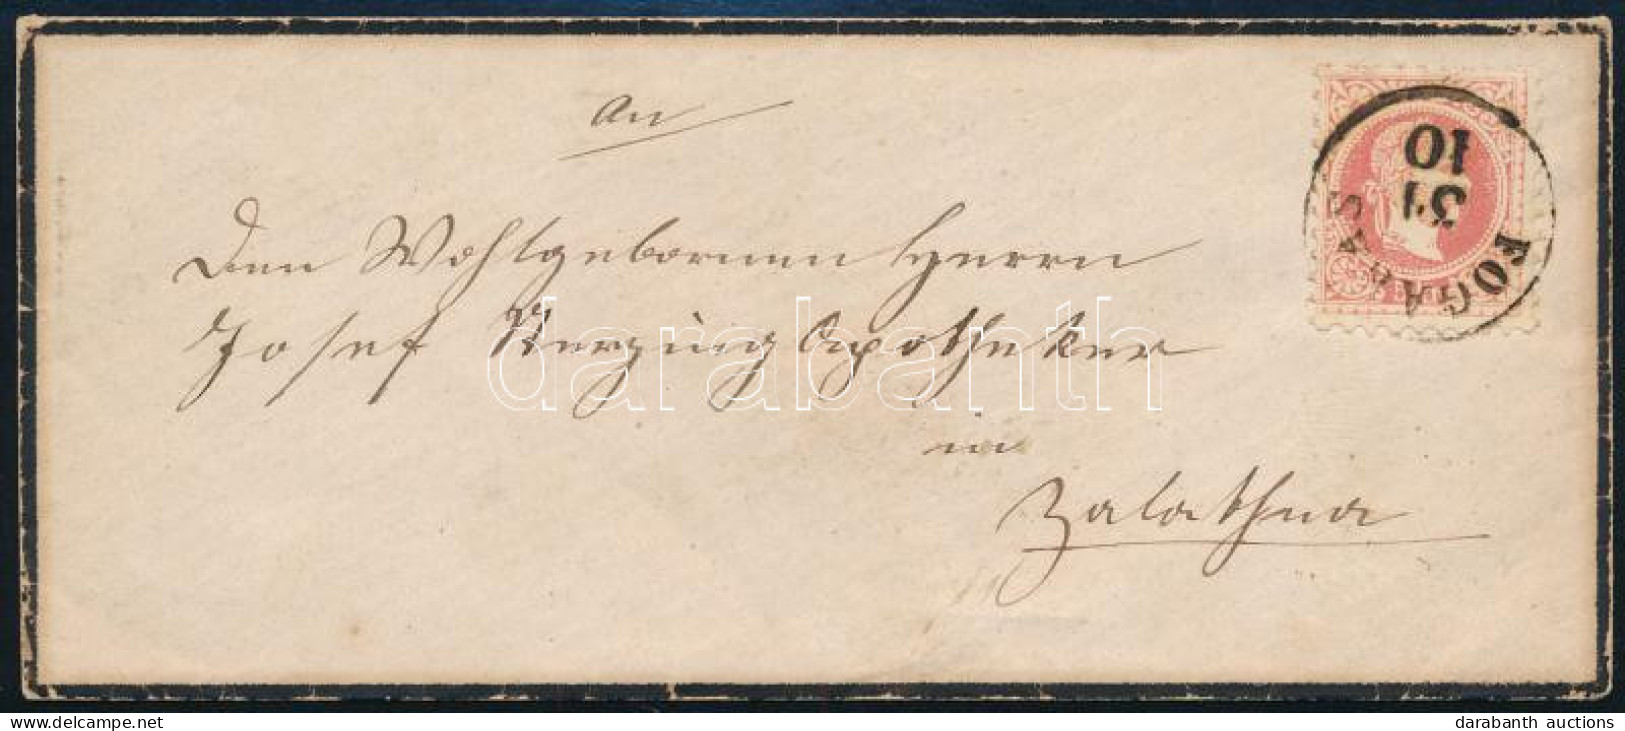 An
Den Wohlgebornen Herrn
Josef Apotheker
in
Zalathna
FOGARAS
31
10
darabanth
www.delcampe.net
darabanth auctions